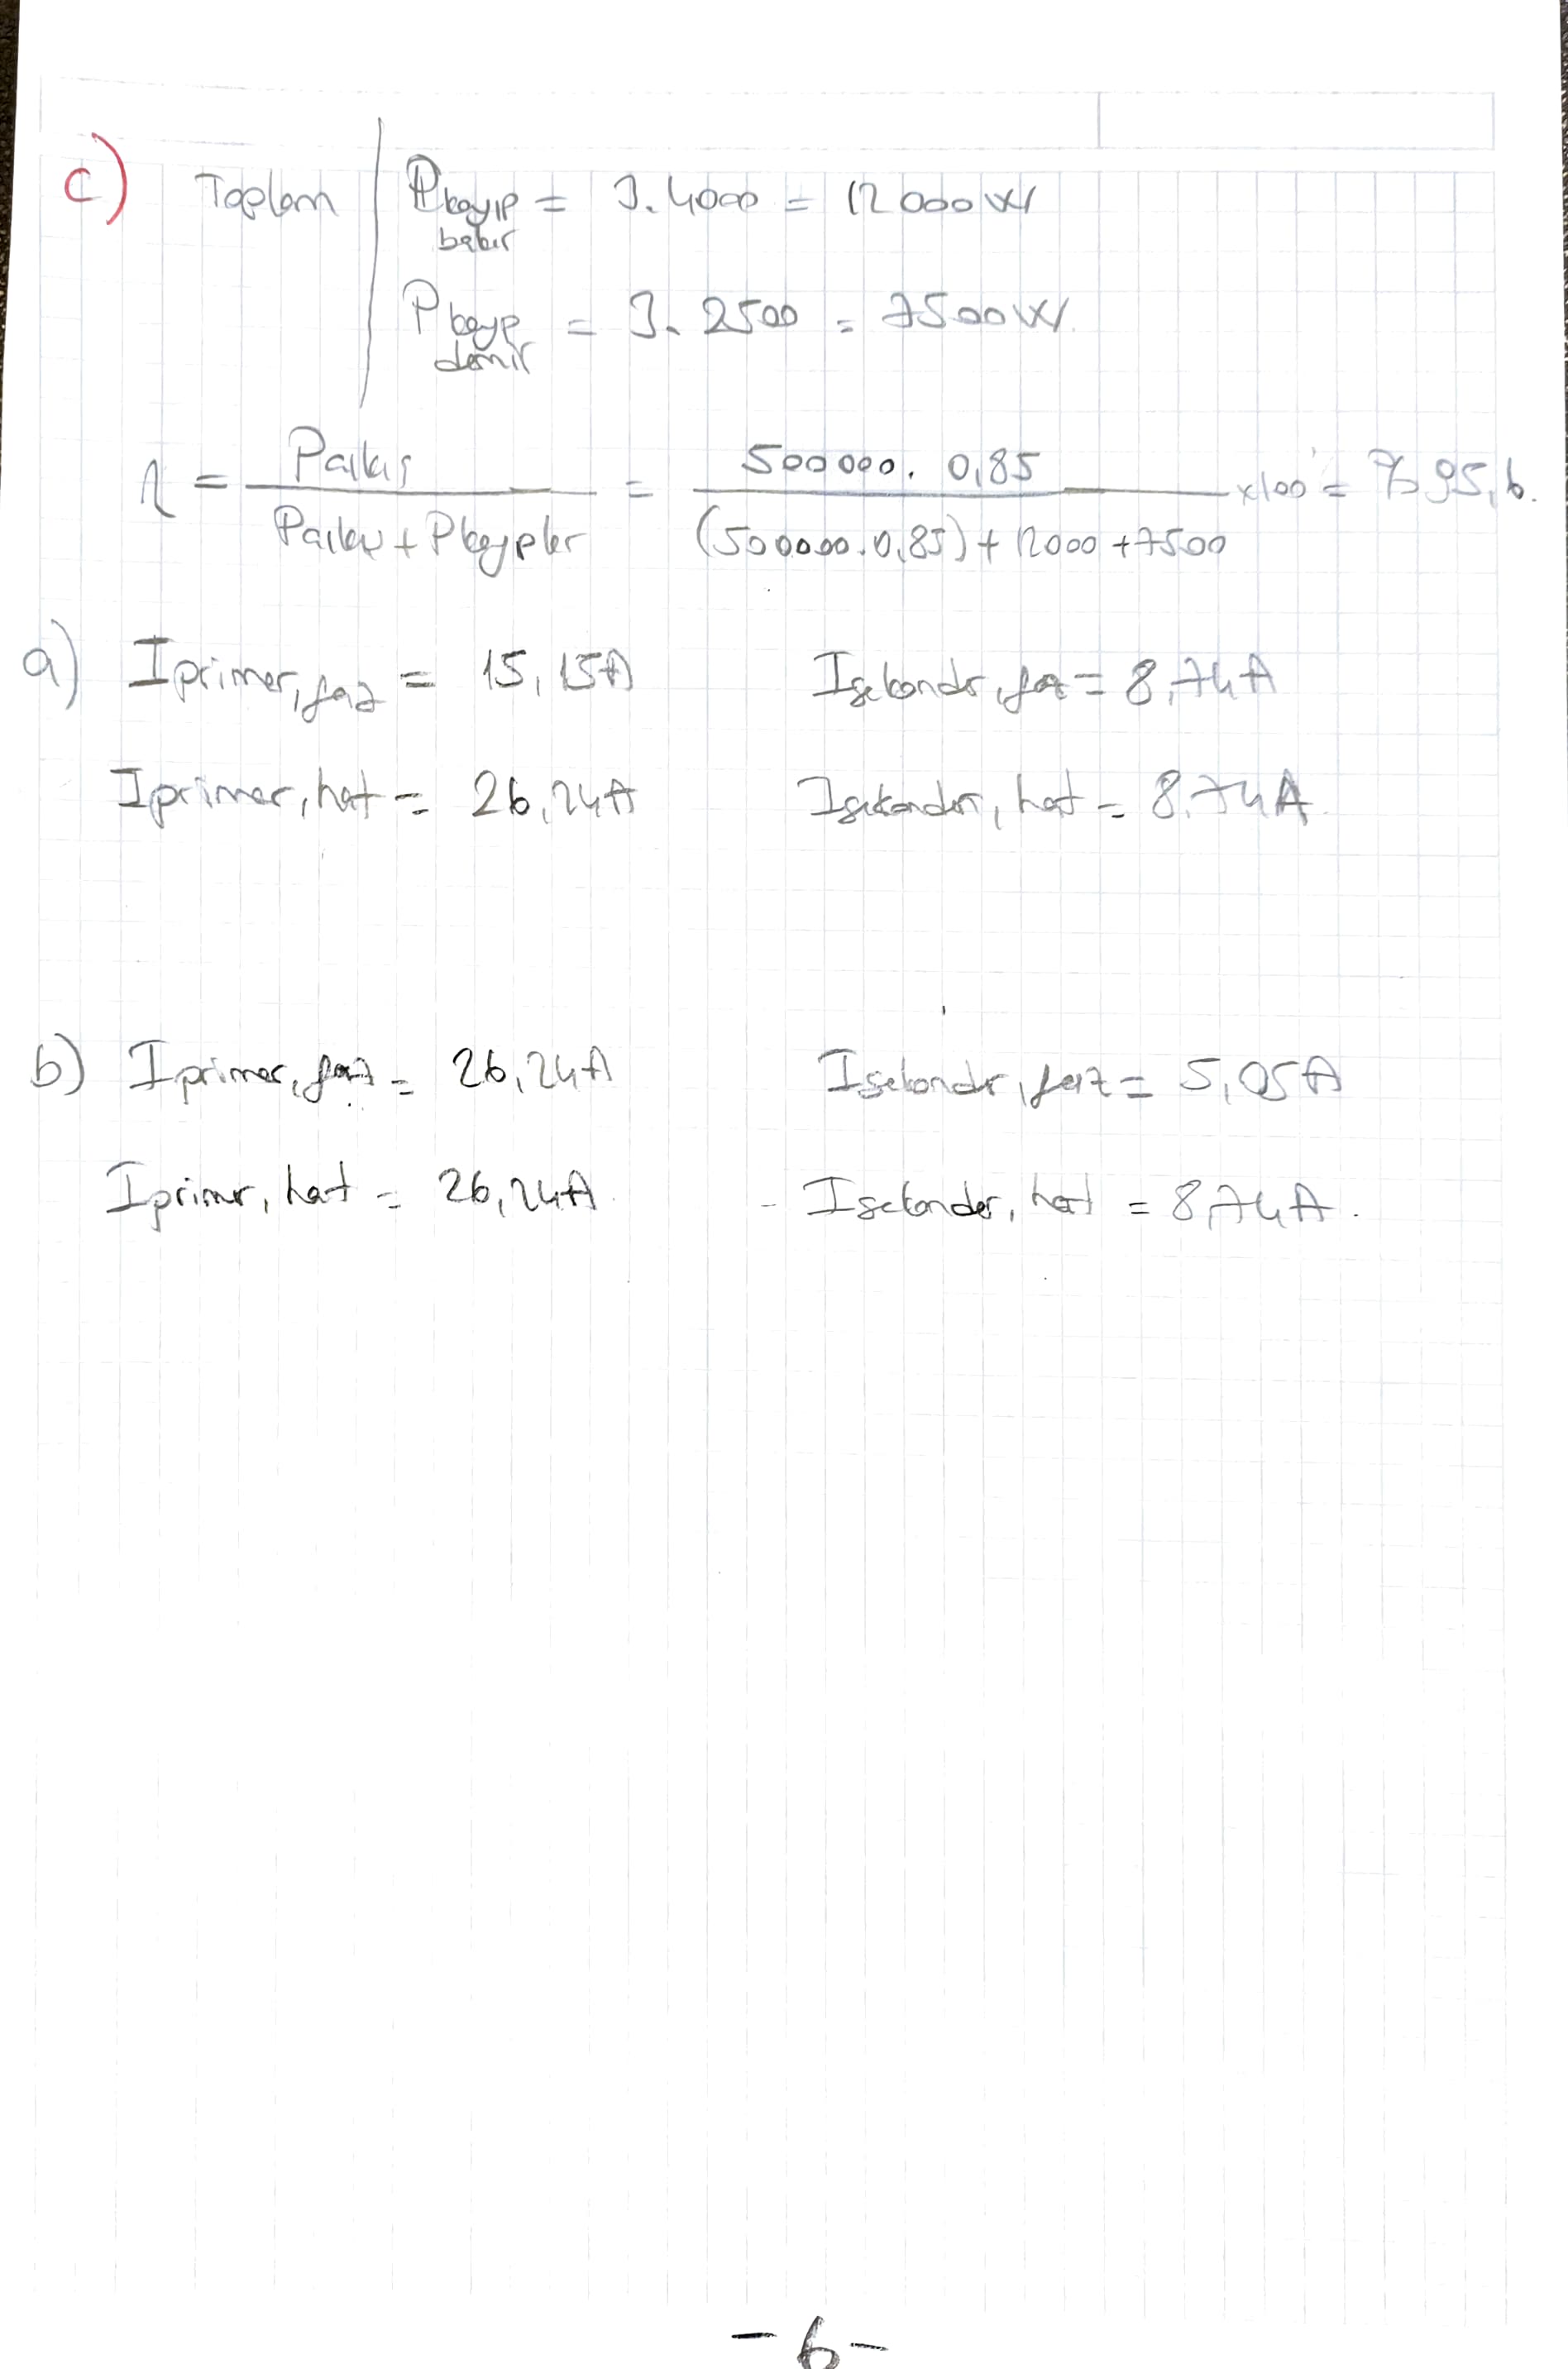 c) Toplam | Pkayıp bakır = 3.4000 = 12000W
Pkayıp demir = 3.2500 = 7500W.
η = Pçıkış / (Pçıkış + Pkayıplar) = 500000. 0,85 / ((500000.0,85) + 12000 + 7500) x100 = %95,6.
a) Iprimer,faz = 15,15A Isekonder,faz = 8,74A
Iprimer,hat = 26,24A Isekonder,hat = 8,74A.
b) Iprimer,faz = 26,24A Isekonder,faz = 5,05A
Iprimer,hat = 26,24A. - Isekonder,hat = 8,74A.
-6-